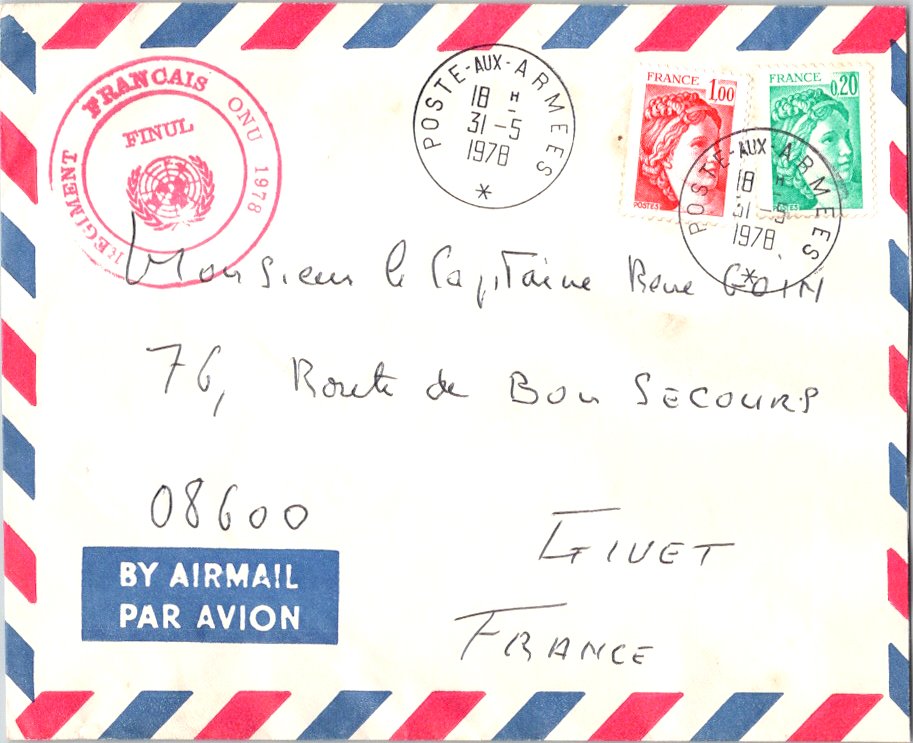 REGIMENT FRANCAIS ONU 1978
FINUL
POSTE-AUX-ARMEES
18 H
31-5
1978
*
FRANCE 1,00
POSTES
FRANCE 0,20
POSTE-AUX-ARMEES
18 H
31-5
1978
*
Monsieur le Capitaine GOIN
76, Route de Bon SECOURS
08600
GIVET
FRANCE
BY AIRMAIL
PAR AVION